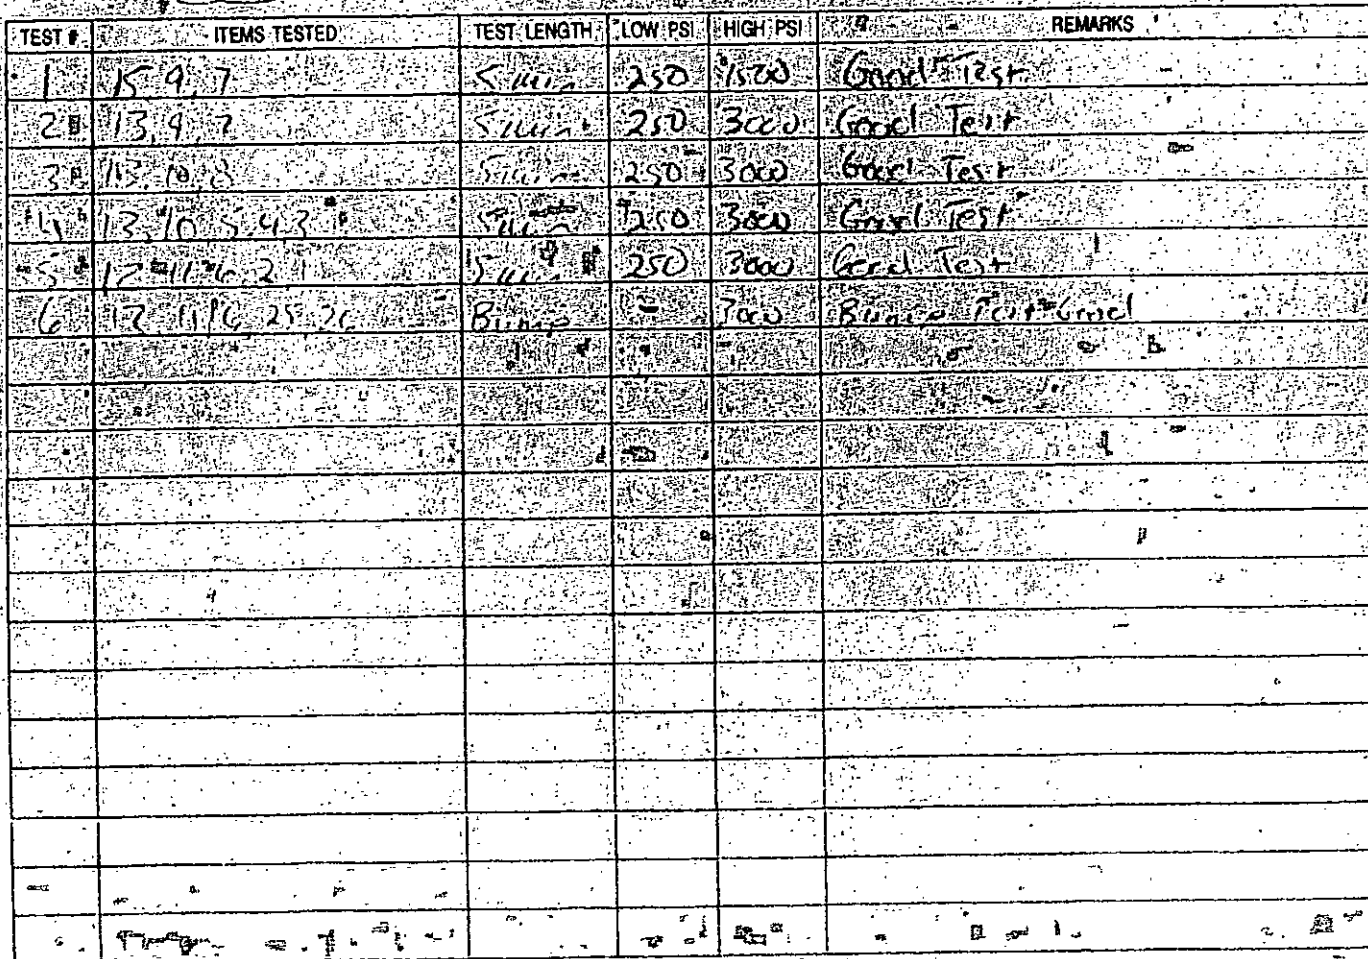 TEST # ITEMS TESTED TEST LENGTH LOW PSI HIGH PSI REMARKS
1 15, 9, 7 5 min 250 1500 Good Test
2 13, 9, 7 5 min 250 3000 Good Test
3 13, 10, 8 5 min 250 3000 Good Test
4 13, 10, 5, 4, 3 5 min 250 3000 Good Test
5 12, 11, 6, 2, 1 5 min 250 3000 Good Test
6 12, 11, 6, 25, 26 Bump - 3000 Bump Test Good